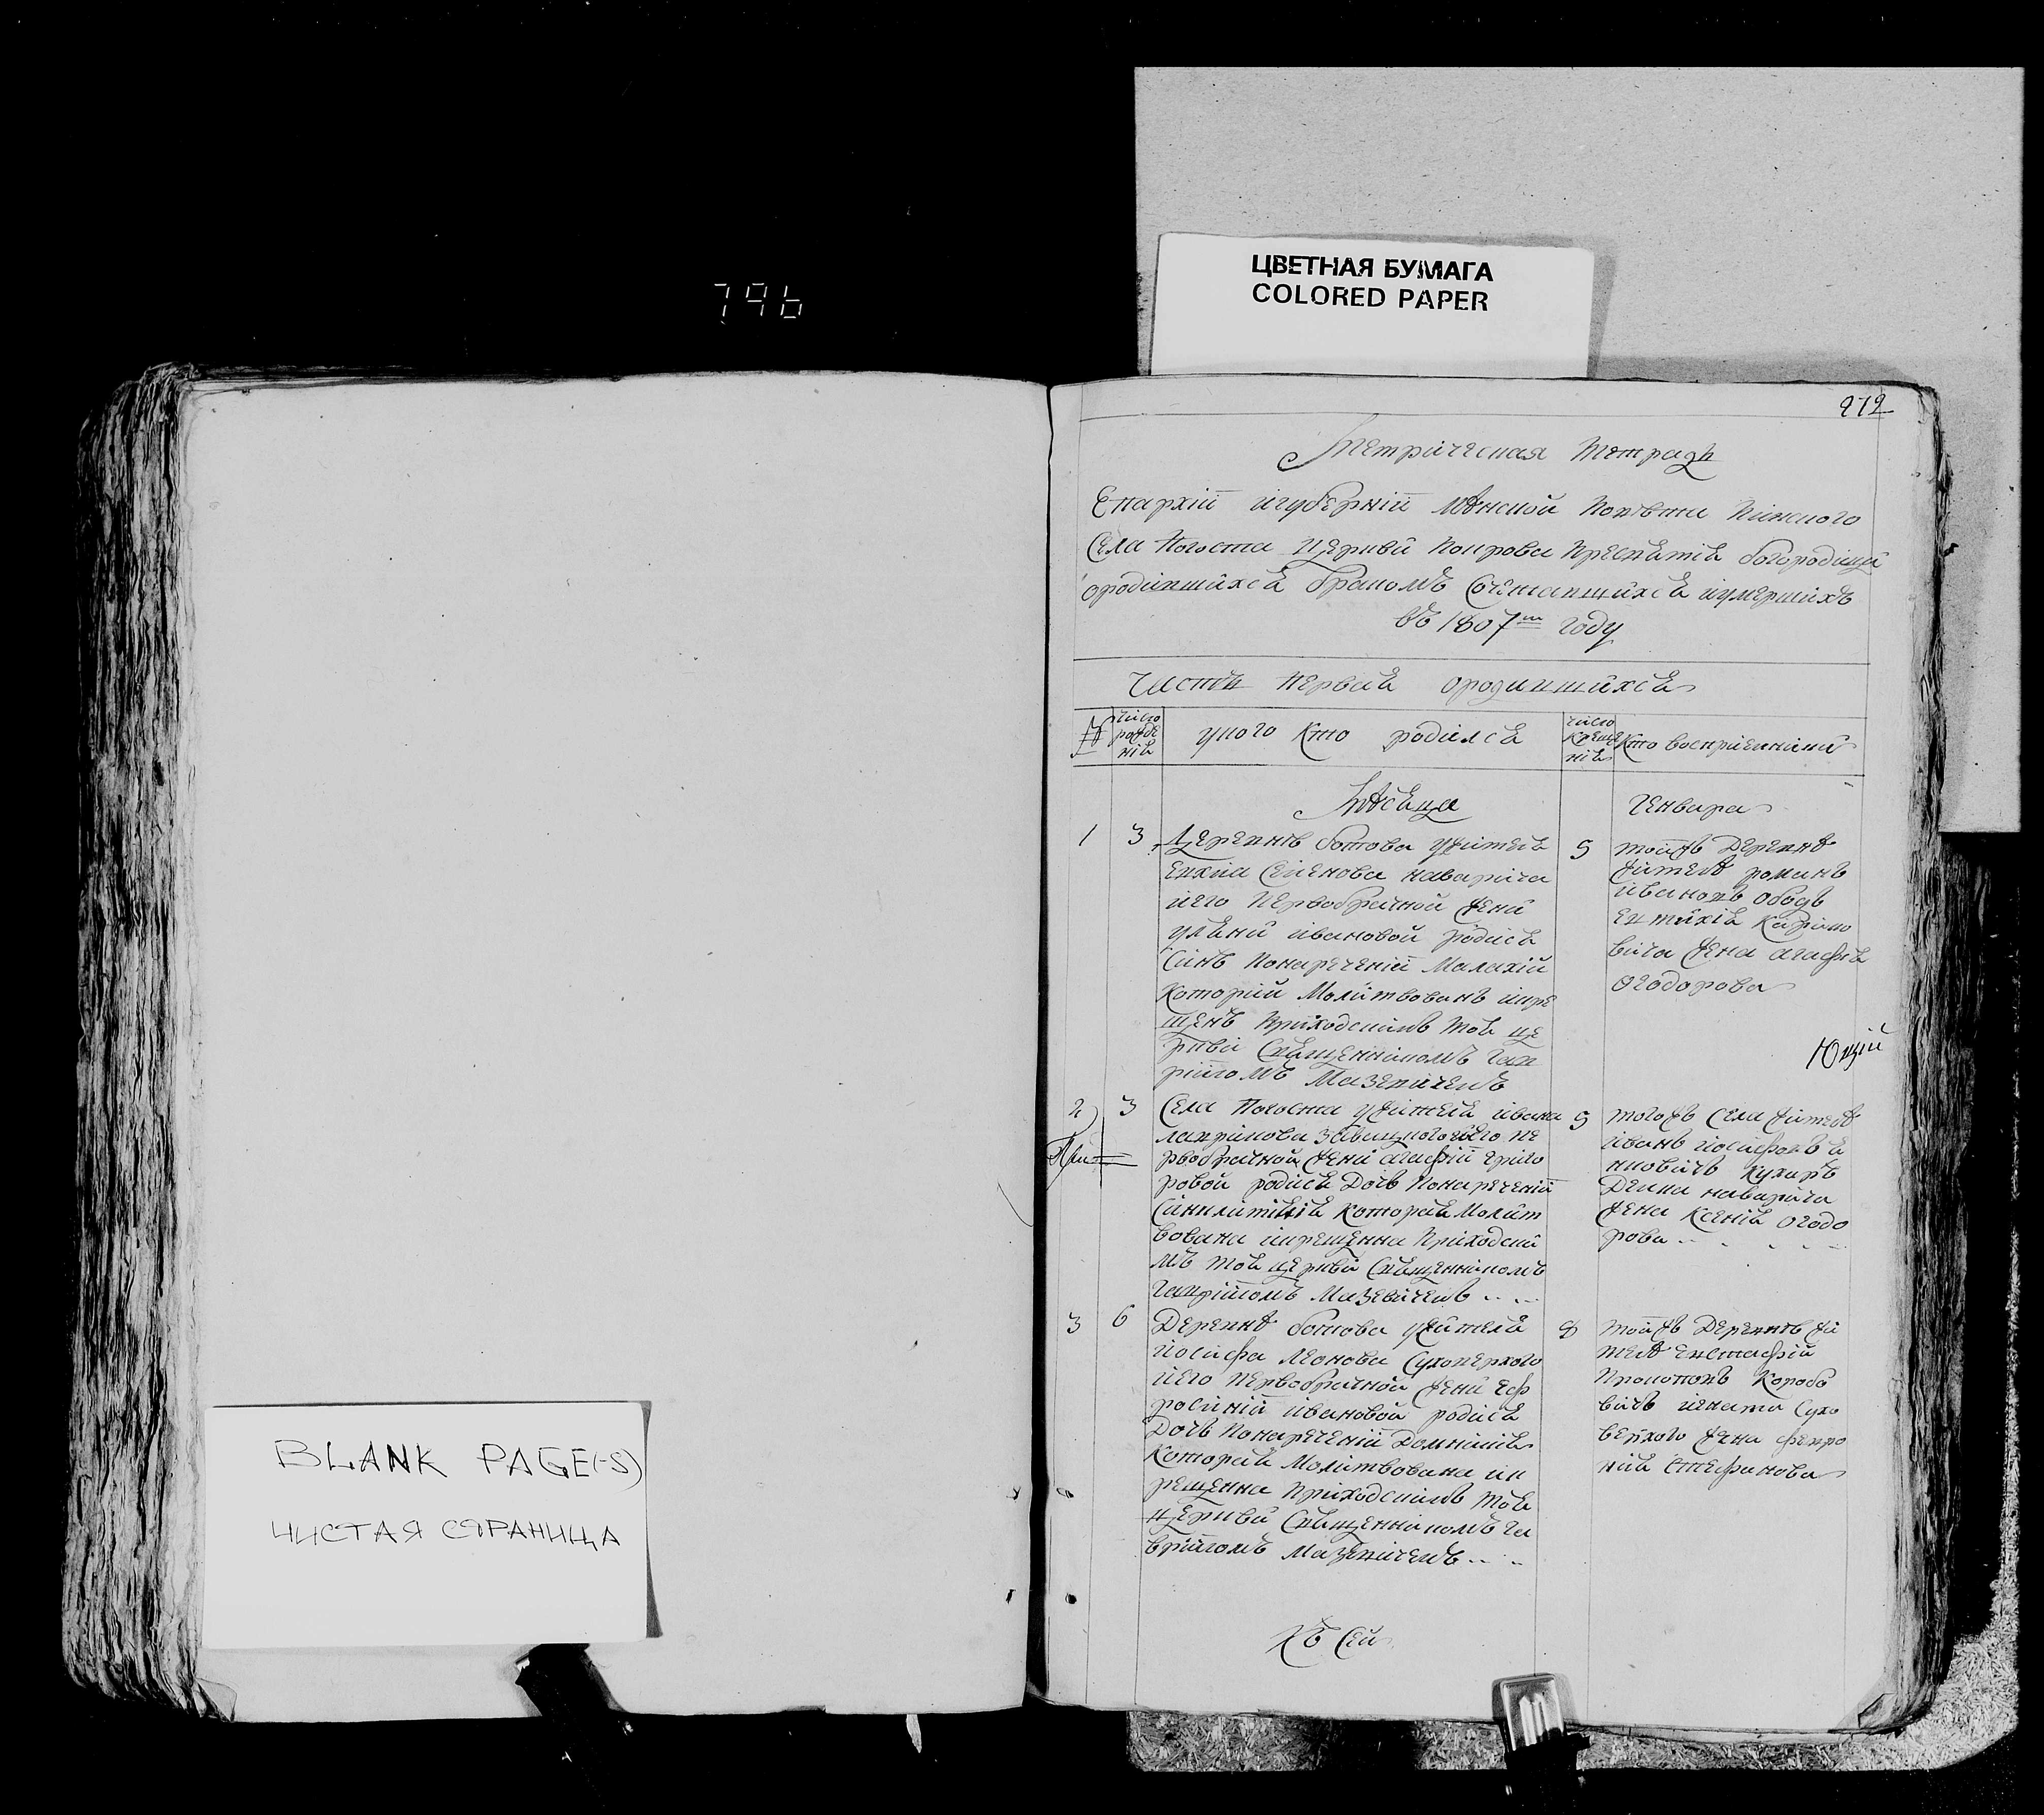 796
ЦВЕТНАЯ БУМАГА
COLORED PAPER
BLANK PAGE(-S)
ЧИСТАЯ СТРАНИЦА
272
Метрическая Тетрадь
Епархіи и губерніи Мѣнской повѣта Пинского
Села Погоста Церкви Покрова Пресвѣтія Богородици
ородившихся бракомъ Сочетавшихся иумершихъ
въ 1807м году
Часть первая ородившихся
№
число рождѣнія
укого Кто родился
число Крещенія
Кто воспріемники
Мѣсяца
Генвара
1
3
Деревнѣ Ботова ужителя
Семенова наварича
иего первобрачной жени
уляни ивановой родися
Синъ понареченіи Малахій
Которій Молитвованъ икре
щенъ приходскимъ тоя це
ркви Священникомъ Гав
ріиломъ Мазевичемъ
5
тойжъ Деревнѣ
жителѣ романъ
ивановъ
евтихія
вича жена агафія
Ѳеодорова
2
3
Села Погоста ужителя ивана
лавринова иего пе
рвобрачной жени агафіи григо
ровой родися Дочъ понареченіи
Синклитикія Которая Молит
вована икрещенна приходски
мъ тоя церкви Священникомъ
гавріиломъ Мазевичемъ
5
тогожъ Села жителѣ
иванъ иосифовъ я
нковичъ кухаръ
наварича
жена Ксенія Ѳеодо
рова
3
6
Деревнѣ Ботова ужителя
иосифа леонова Суховерхого
иего первобрачной жени Еф
росиніи ивановой родися
Дочъ понареченіи Домникія
Которая Молитвована ик
рещенна приходскимъ тоя
церкви Священникомъ га
вріиломъ Мазевичемъ
8
тойжъ Деревнѣ жи
телѣ Евстафій
Прокоповъ Коробо
вичъ игната Сухо
верхого жена февро
нія Стефанова